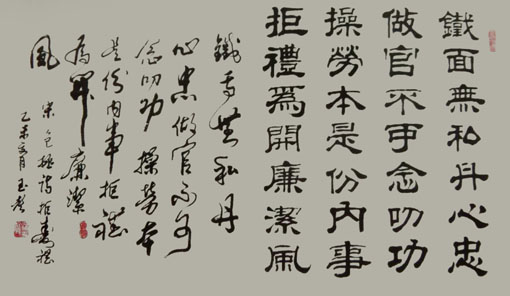 鐵面無私丹心忠
做官不可念叨功
操勞本是份內事
拒禮為開廉潔風
鐵面無私丹
心忠做官不可
念叨功操勞本
是份內事拒禮
為開廉潔
風
宋包拯詩拒壽禮
乙未月玉